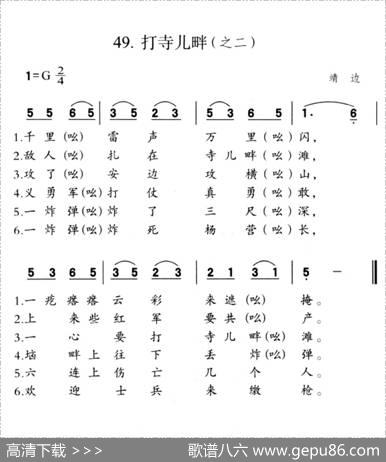 49. 打寺儿畔(之二)
1=G 2/4
靖 边
5 5 6 5 | 3 5 2 3 | 5 3 6 5 | 1· 6 |
1.千里(吆) 雷声 万里(吆)闪,
2.敌人(吆) 扎在 寺儿畔(吆)滩,
3.攻了(吆) 安边 攻横(吆)山,
4.义勇军(吆)打仗 真勇(吆)敢,
5.一炸弹(吆)炸了 三尺(吆)深,
6.一炸弹(吆)炸死 杨营(吆)长,
5 3 6 5 | 3 5 2 3 | 2 1 3 1 | 5 – ‖
1.一疙瘩瘩云彩 来遮(吆)掩。
2.上来些红军 要共(吆)产。
3.一心要打 寺儿畔(吆)滩。
4.墕畔上往下 丢炸(吆)弹。
5.六连上伤亡 几个人。
6.欢迎士兵 来缴枪。
高清下载 >>>
歌谱八六 www.gepu86.com